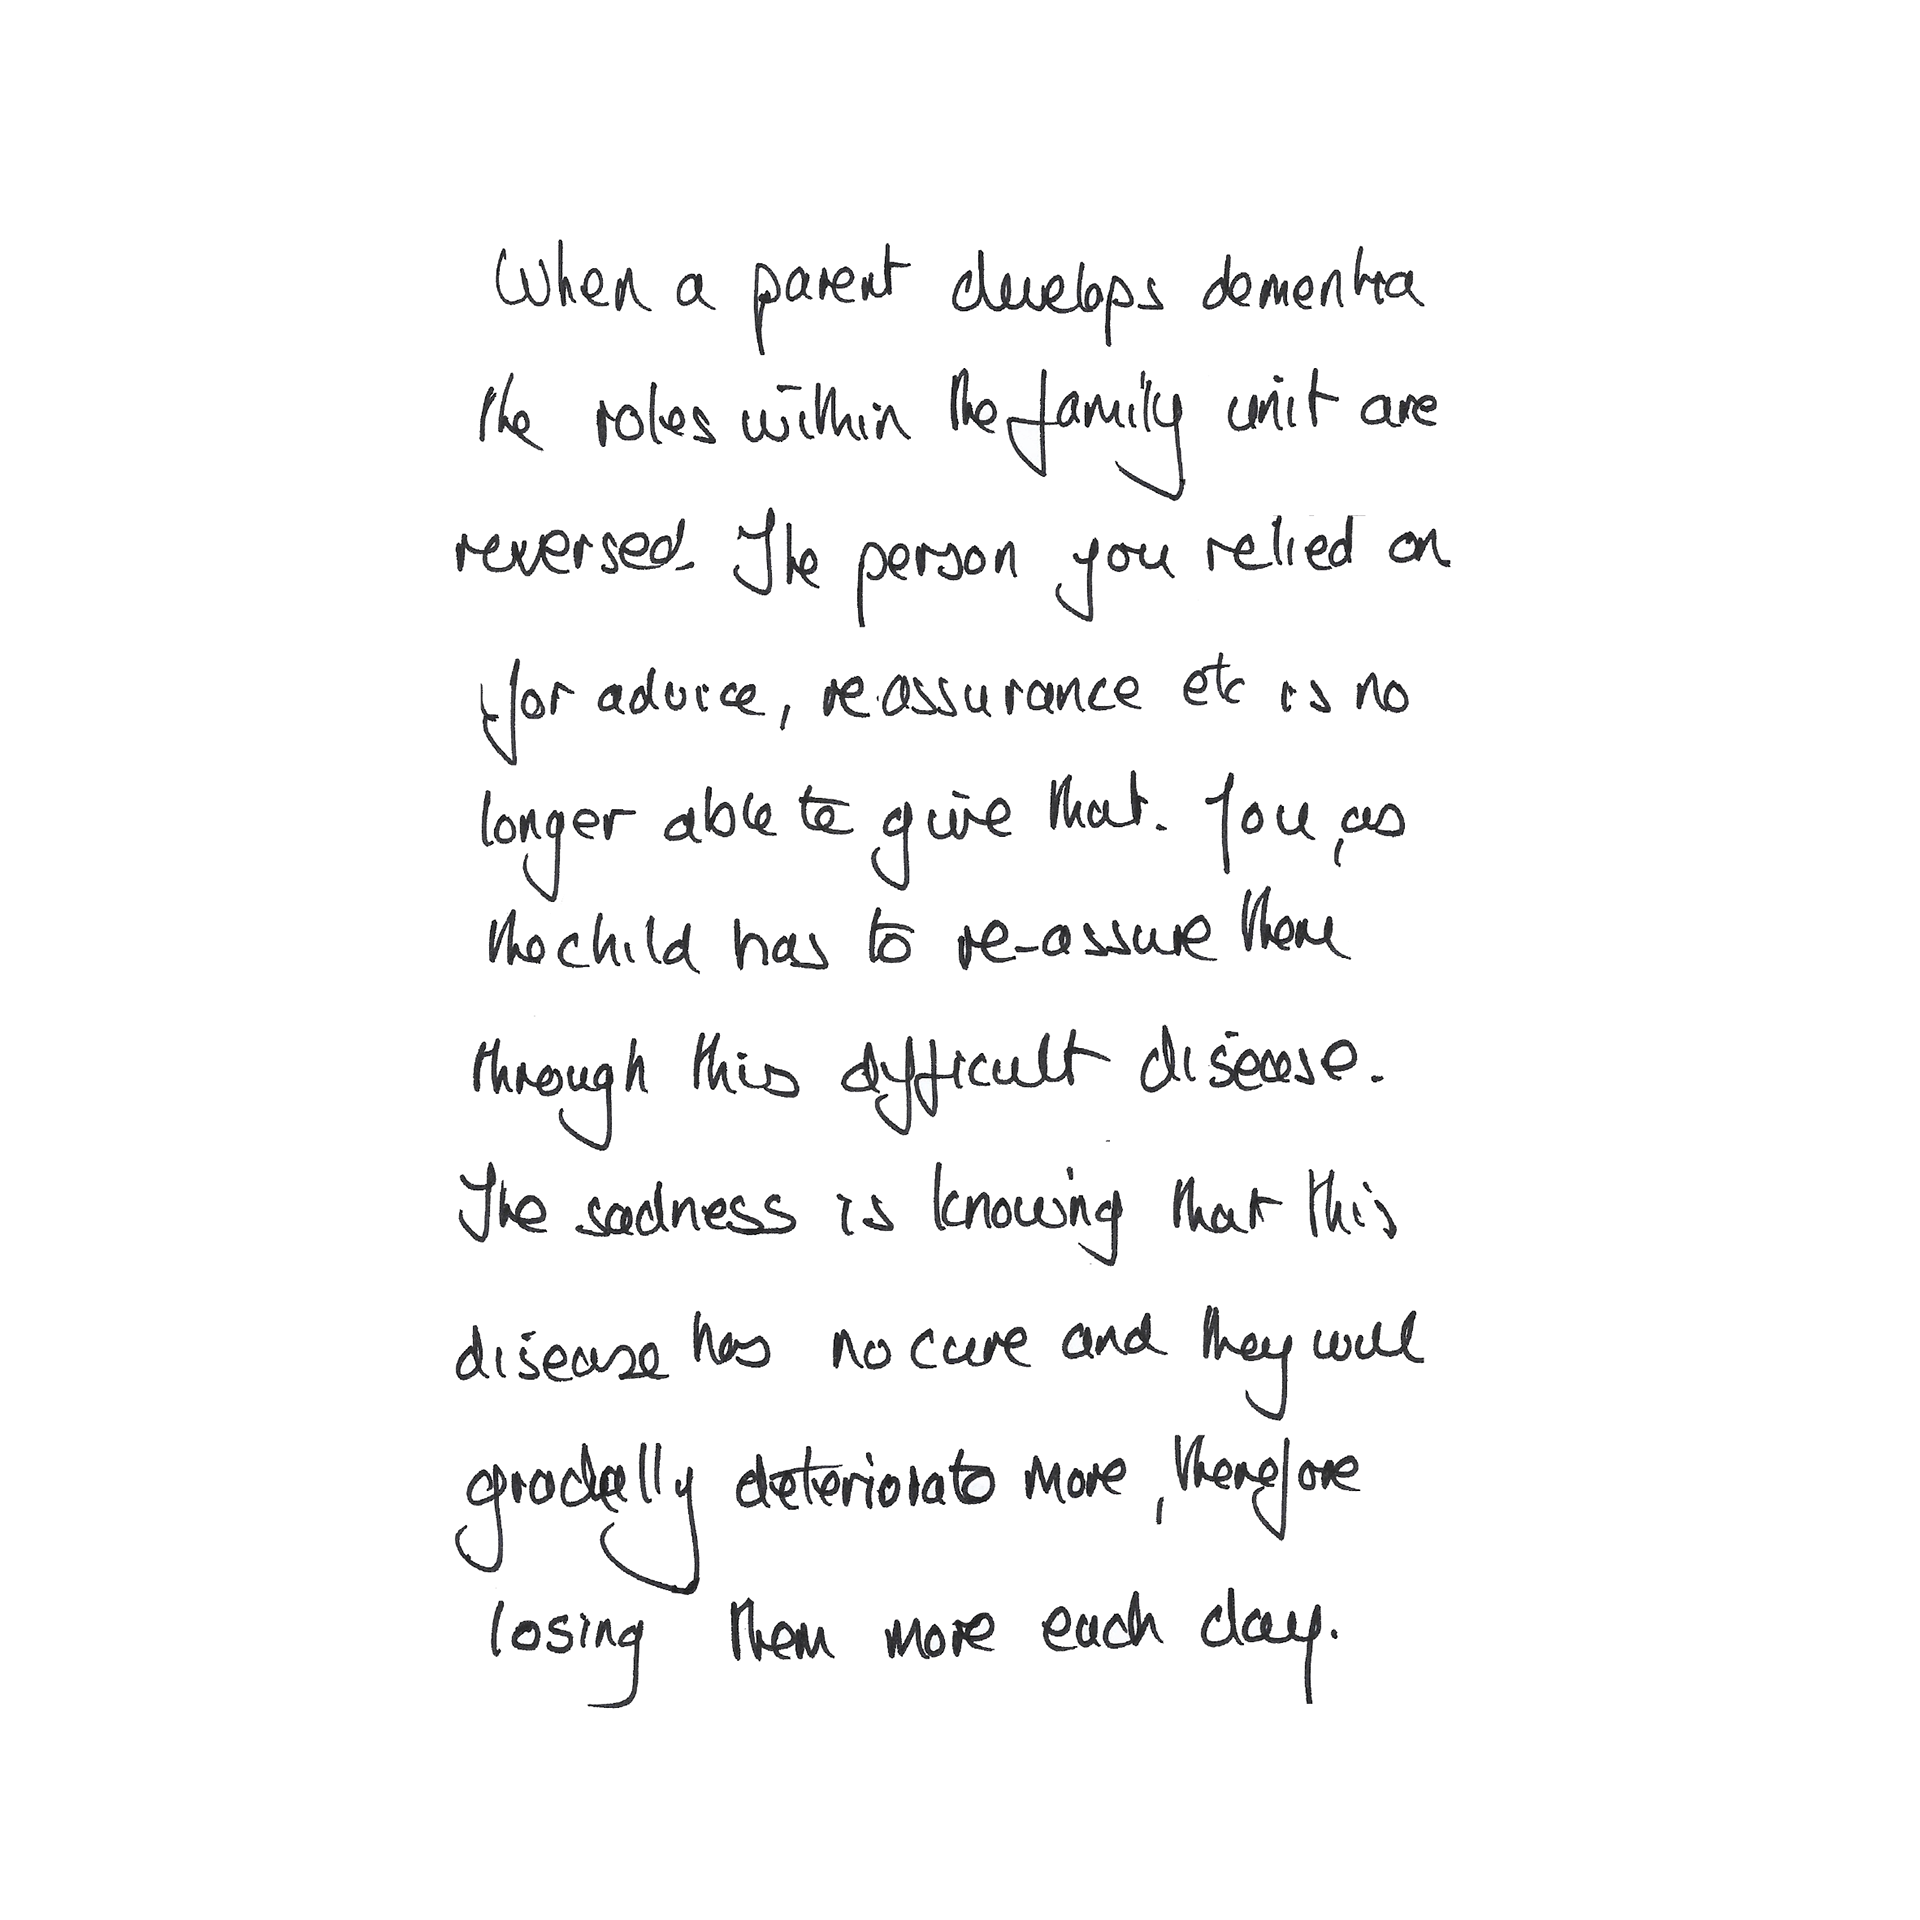 When a parent develops dementia
the roles within the family unit are
reversed. The person you relied on
for advice, reassurance etc is no
longer able to give that. You, as
the child has to re-assure them
through this difficult disease.
The sadness is knowing that this
disease has no cure and they will
gradually deteriorate more, therefore
losing them more each day.